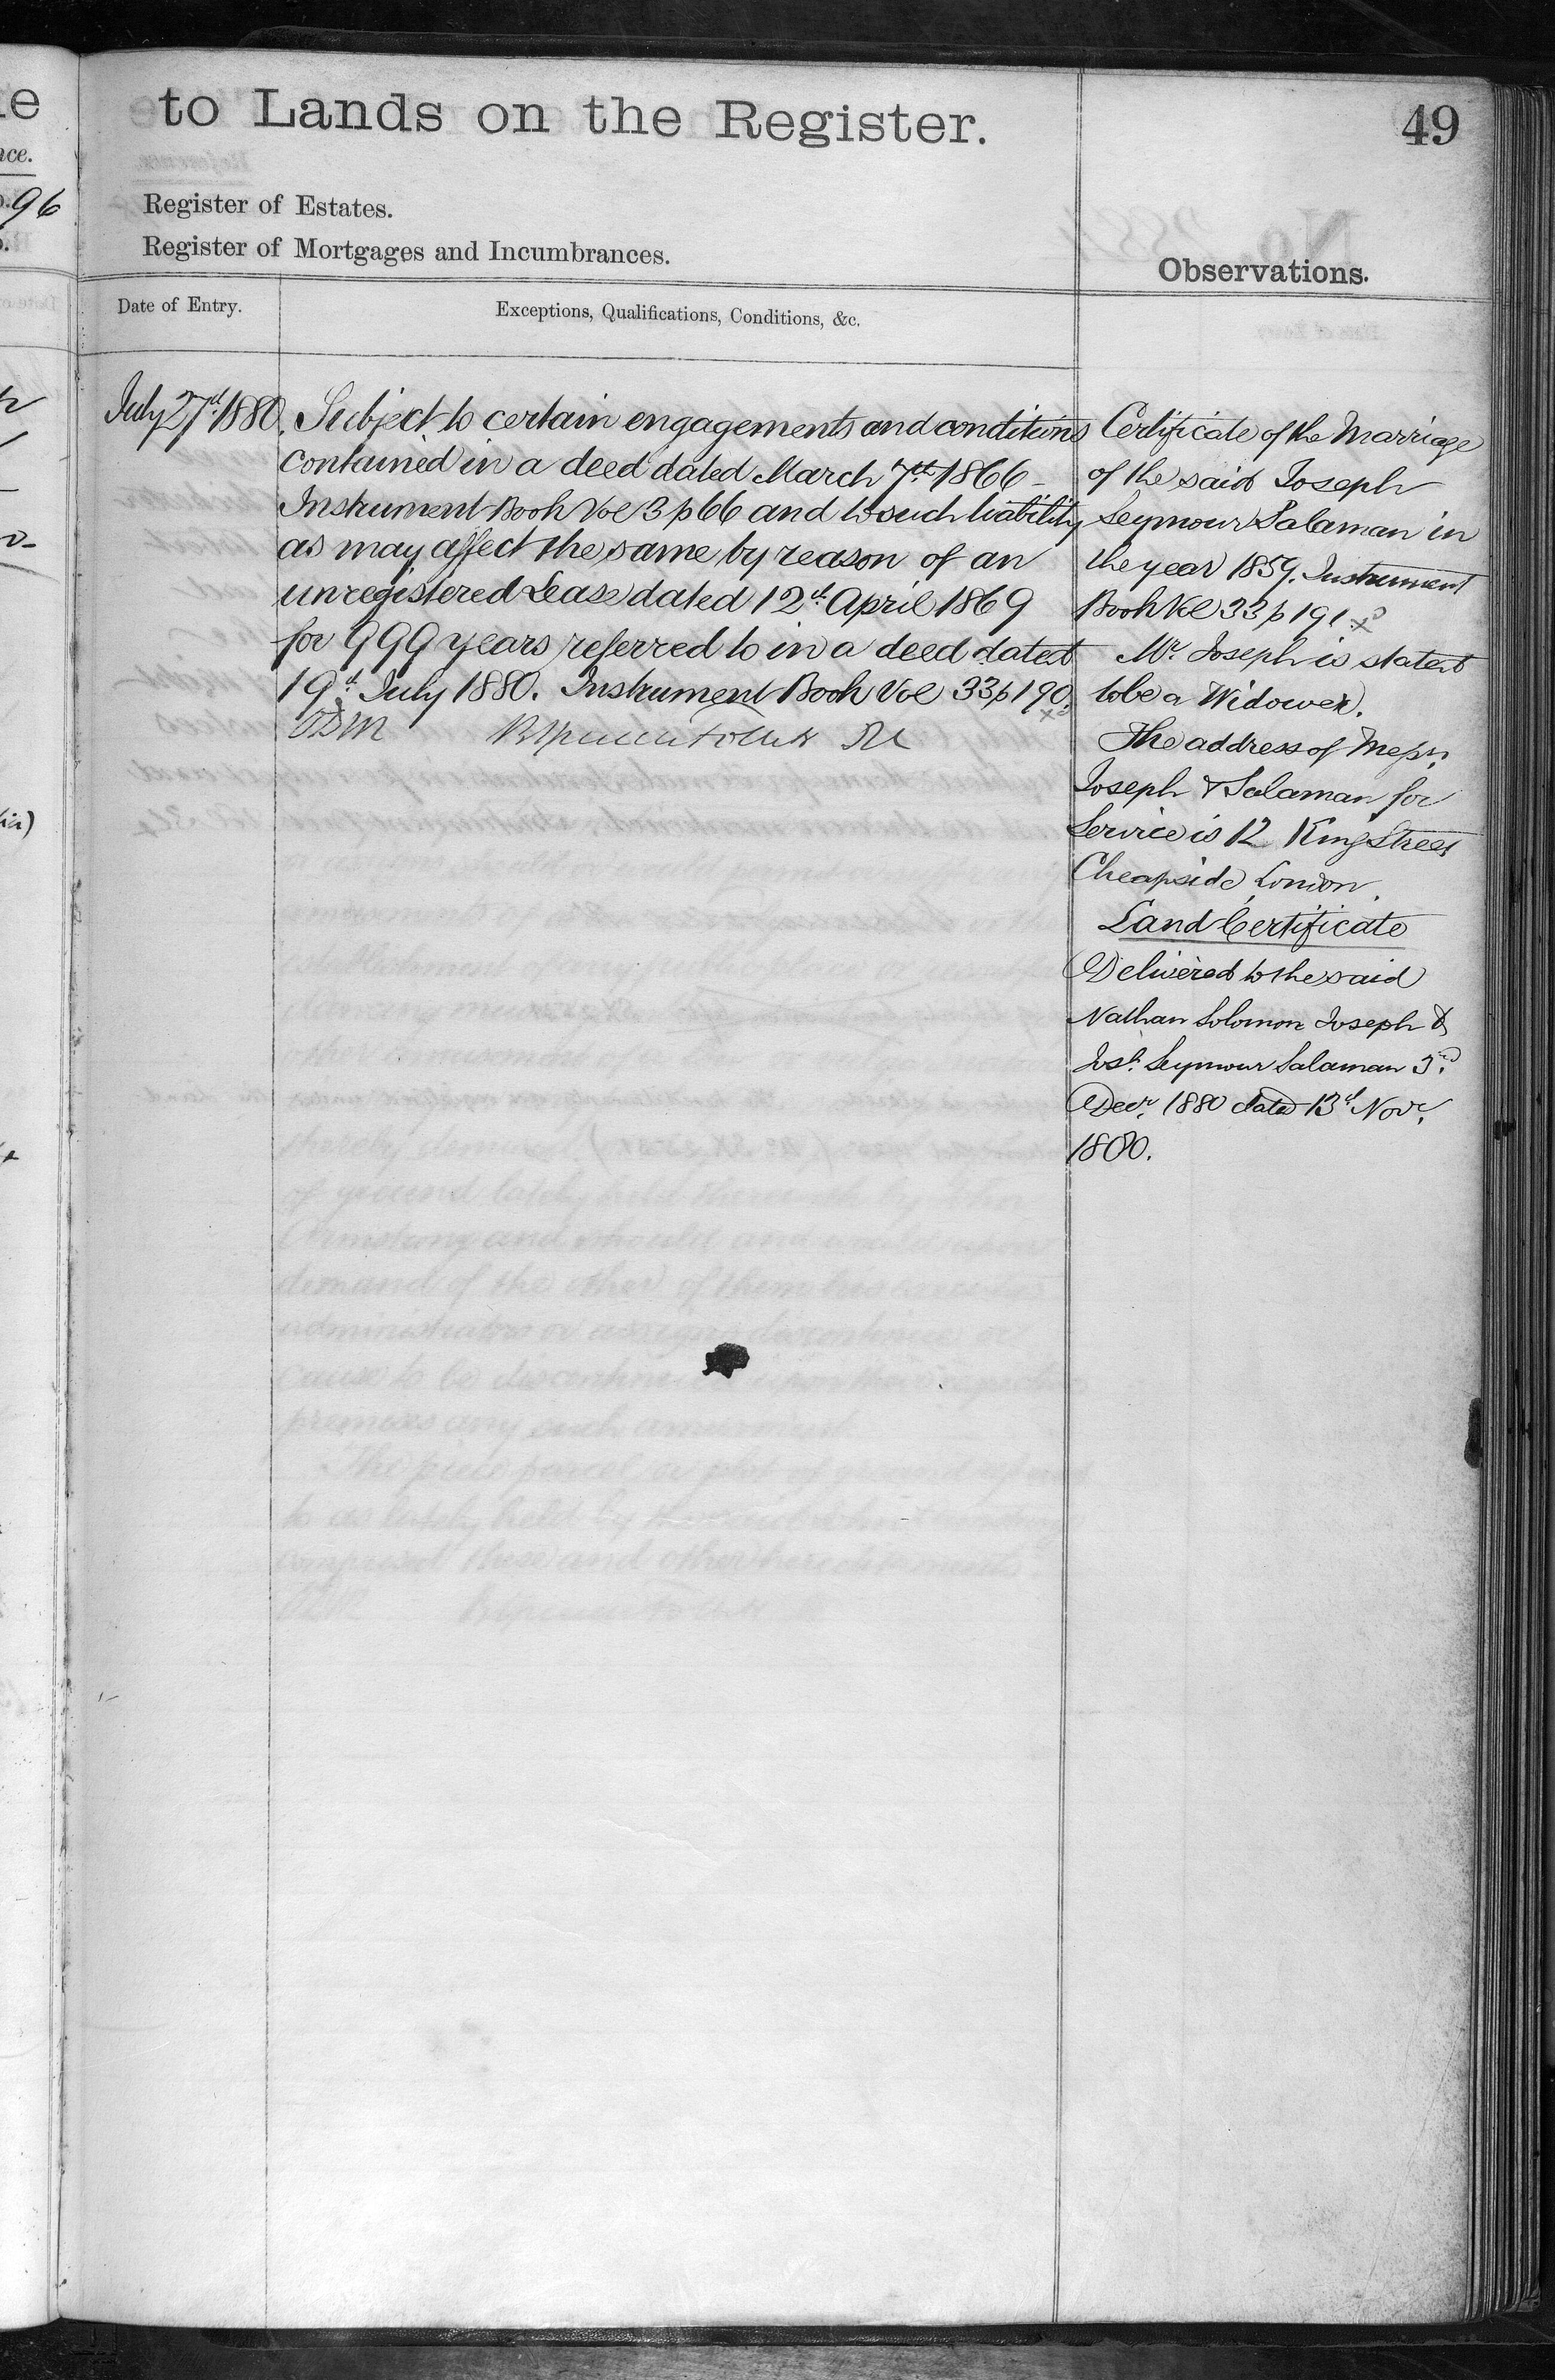 to Lands on the Register.
49
Register of Estates.
Register of Mortgages and Incumbrances.
Observations.
Date of Entry.
Exceptions, Qualifications, Conditions, &c.
July 27th 1880.
Subject to certain engagements and conditions
contained in a deed dated March 7th 1866 -
Instrument Book Vol 3 p 66 and to such liability
as may affect the same by reason of an
unregistered Lease dated 12th April 1869
for 999 years referred to in a deed dated
19th July 1880. Instrument Book Vol 33 p 190.
Certificate of the Marriage
of the said Joseph
Seymour Salaman in
the year 1859. Instrument
Book Vol 33 p 191.
Mr. Joseph is stated
to be a Widower.
The address of Messrs.
Joseph & Salaman for
Service is 12 King Street
Cheapside, London.
Land Certificate
Delivered to the said
Nathan Solomon Joseph &
Josh. Seymour Salaman 3rd
Decr. 1880 dated 13th Novr.
1880.
96